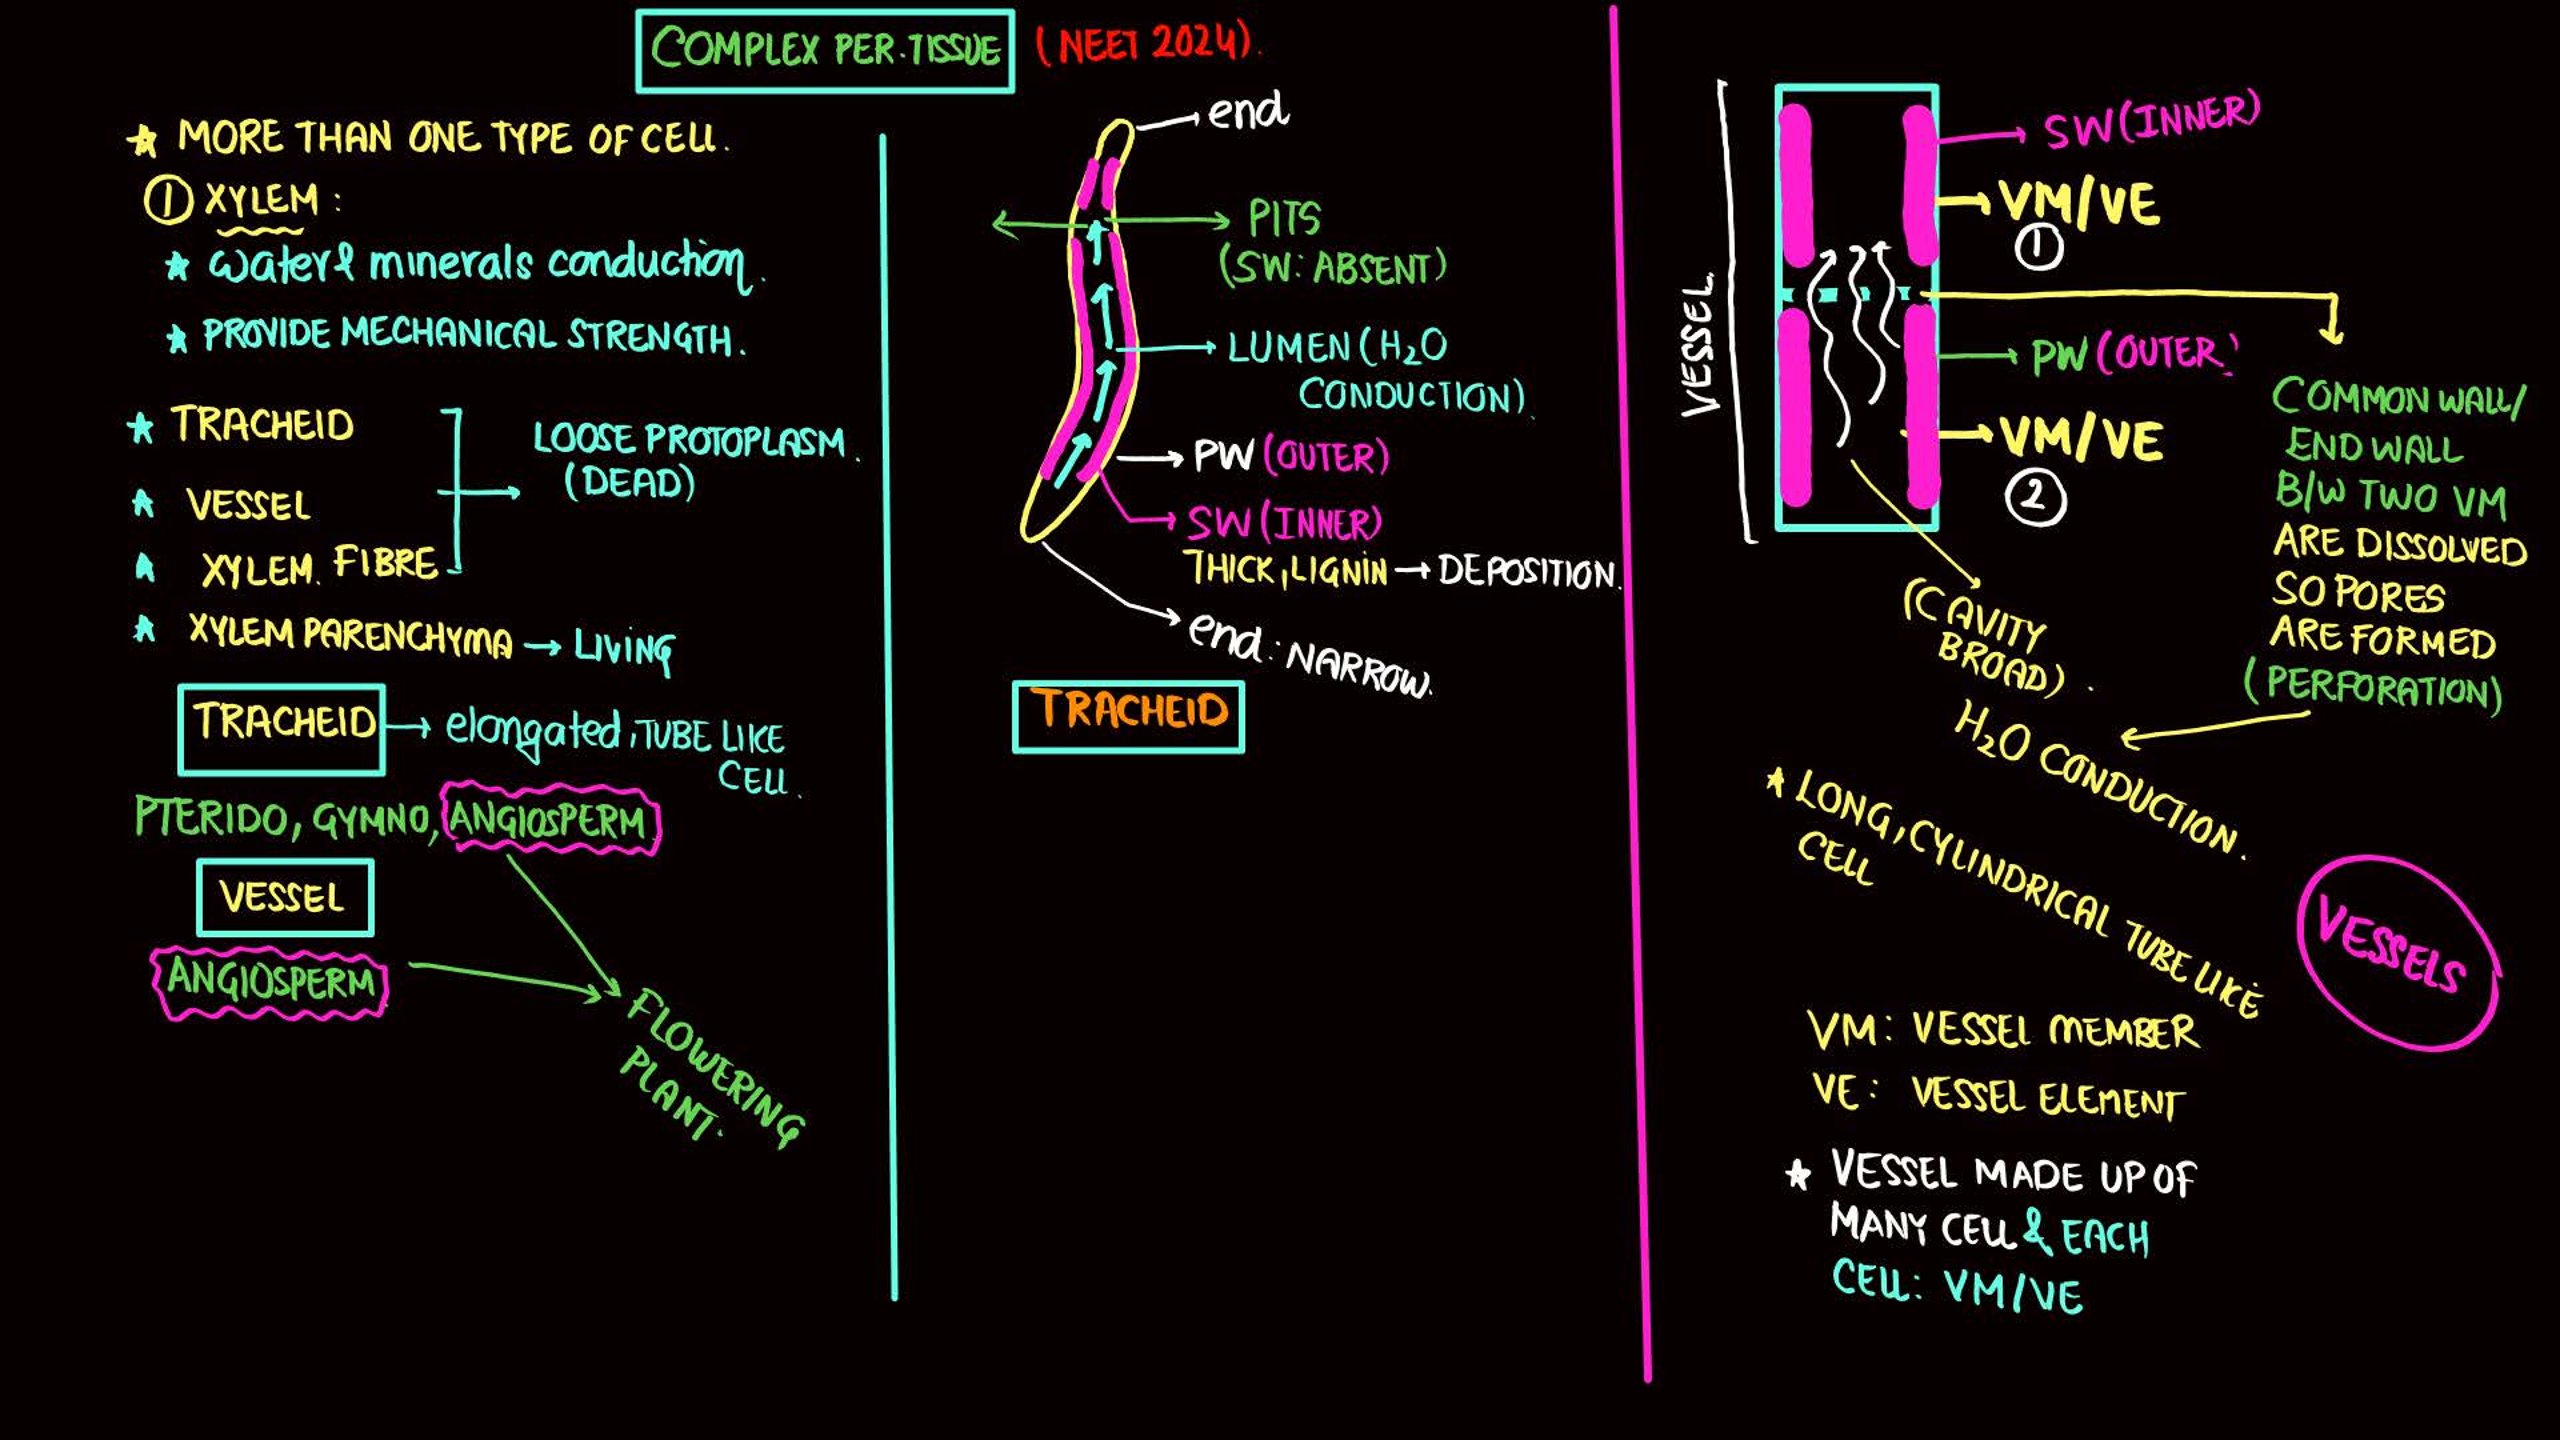 COMPLEX PER.TISSUE (NEET 2024).
★ MORE THAN ONE TYPE OF CELL.
① XYLEM :
★ water & minerals conduction.
★ PROVIDE MECHANICAL STRENGTH.
★ TRACHEID
★ VESSEL
★ XYLEM. FIBRE
LOOSE PROTOPLASM.
(DEAD)
★ XYLEM PARENCHYMA → LIVING
TRACHEID → elongated, TUBE LIKE
CELL.
PTERIDO, GYMNO, ANGIOSPERM
VESSEL
ANGIOSPERM
FLOWERING
PLANT.
end
PITS
(SW: ABSENT)
LUMEN (H₂O
CONDUCTION).
PW (OUTER)
SW (INNER)
THICK, LIGNIN → DEPOSITION.
end: NARROW.
TRACHEID
VESSEL
SW (INNER)
VM/VE
①
PW (OUTER)
VM/VE
②
COMMON WALL/
END WALL
B/W TWO VM
ARE DISSOLVED
SO PORES
ARE FORMED
(PERFORATION)
(CAVITY
BROAD).
H₂O CONDUCTION.
★ LONG, CYLINDRICAL TUBE LIKE
CELL
VESSELS
VM: VESSEL MEMBER
VE: VESSEL ELEMENT
★ VESSEL MADE UP OF
MANY CELL & EACH
CELL: VM/VE